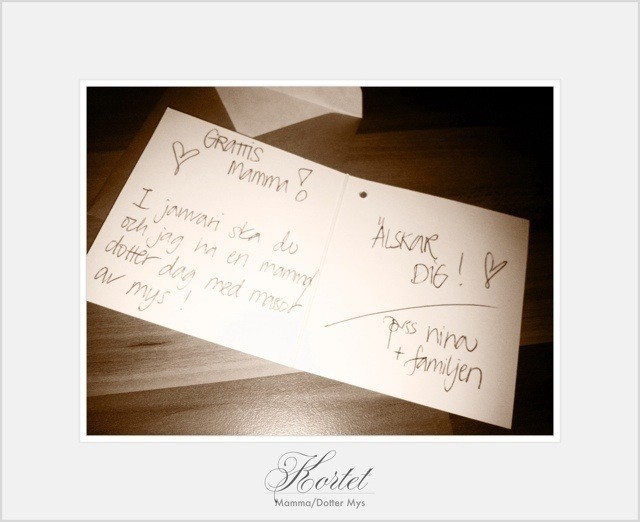 Grattis
Mamma!
I januari ska du
och jag ha en mamma/
dotter dag med massor
av mys!
ÄLSKAR
DIG!
Puss nina
+ familjen
Kortet
Mamma/Dotter Mys